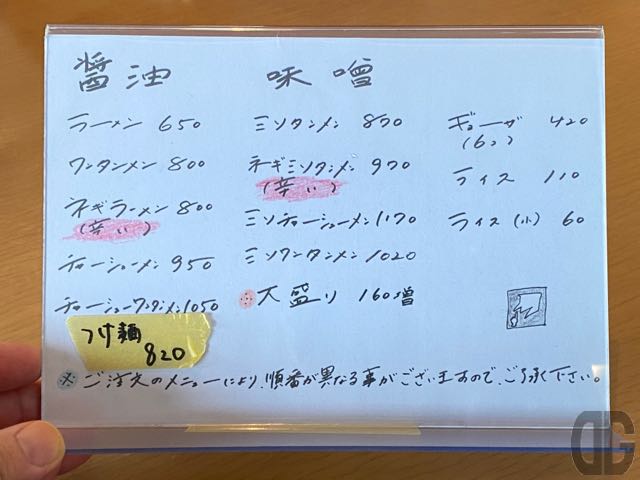 醤油
ラーメン 650
ワンタンメン 800
ネギラーメン 800
(辛い)
チャーシューメン 950
チャーシューワンタンメン 1050
つけ麺
820
味噌
ミソタンメン 870
ネギミソタンメン 970
(辛い)
ミソチャーシューメン 1170
ミソワンタンメン 1020
※大盛り 160増
ギョーザ 420
(6コ)
ライス 110
ライス(小) 60
※ご注文のメニューにより、順番が異なる事がございますので、ご了承下さい。
DG